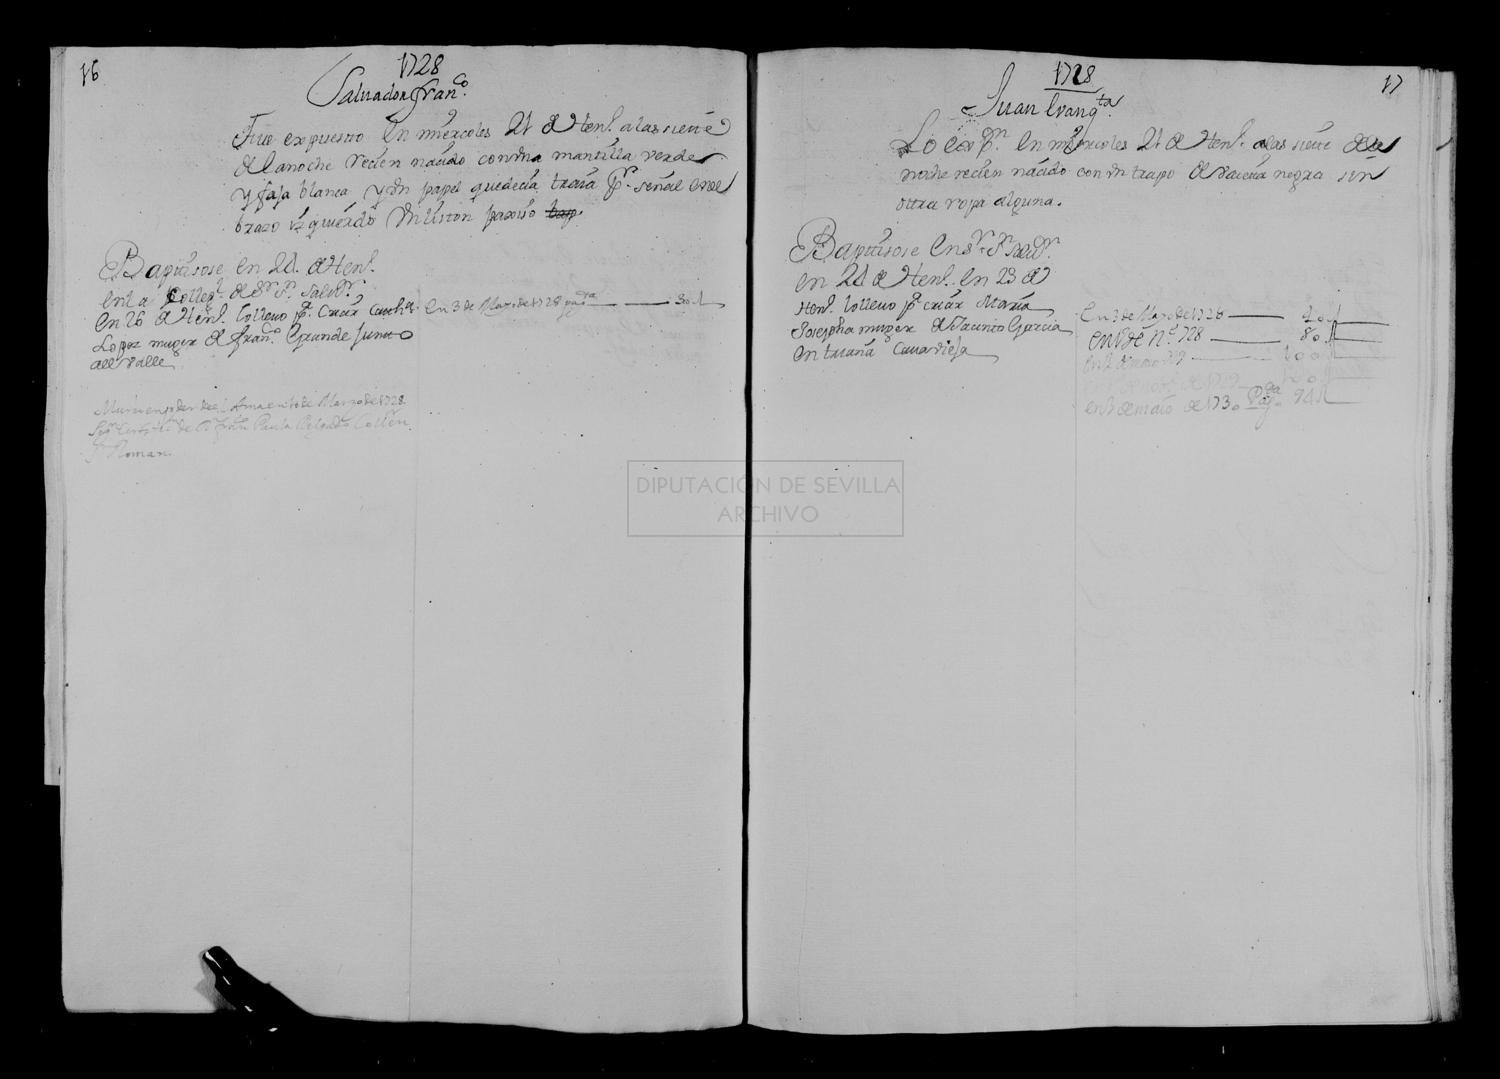 16
1728
Salvador Fran.co
Fue expuesto en miercoles 21 de Hen.o a las siete
de la noche recien nacido con vna mantilla verde
y faja blanca y vn papel que decia traia p.r señal en el
brazo izquierdo vn liston pajiso
Baptisose en 24 de Hen.o
en la Colleg.l de S.r S.n Salv.r
en 26 de Hen.o lo lleuo p.a criar
Lopez muger de Fran.co Grande junto
al Valle
en 3 de Marzo de 1728 30
Murio en poder del Ama en 10 de Marzo de 1728
Seg.n Certif.n de D.n Fran.co Paula Delgado
S.n Roman
17
1728
Juan Evang.ta
Lo exp.n en miercoles 21 de Hen.o a las siete de la
noche recien nacido con vn trapo de vaieta negra sin
ottra ropa alguna.
Baptisose en S.r S.n Salv.r
en 24 de Hen.o en 23 de
Hen.o lo lleuo p.a criar Maria
Josepha muger de Jacinto Garcia
en triana Caua vieja
En 3 de Marzo de 1728 40
en 1 de N.e 728 80
en 3 de maio de 1730 Pag.da 94
DIPUTACIÓN DE SEVILLA
ARCHIVO